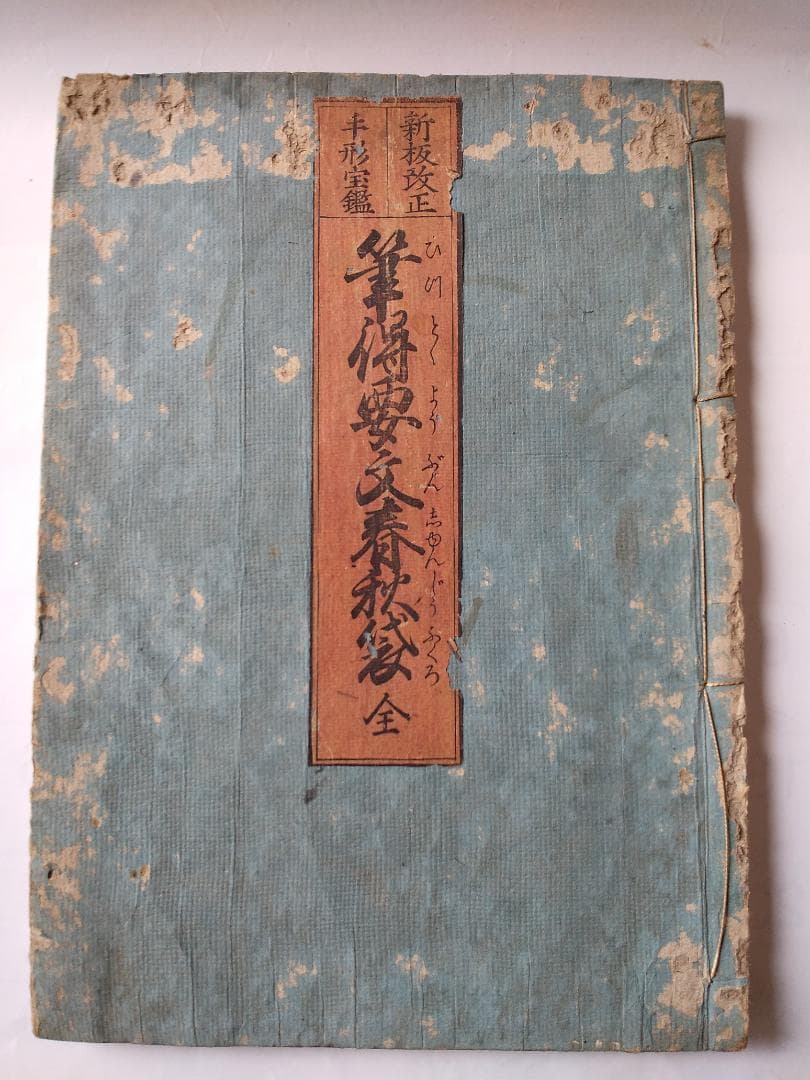 新板改正
手形宝鑑
筆得要文春秋袋 全
ひつとくようぶんしゆんじうふくろ